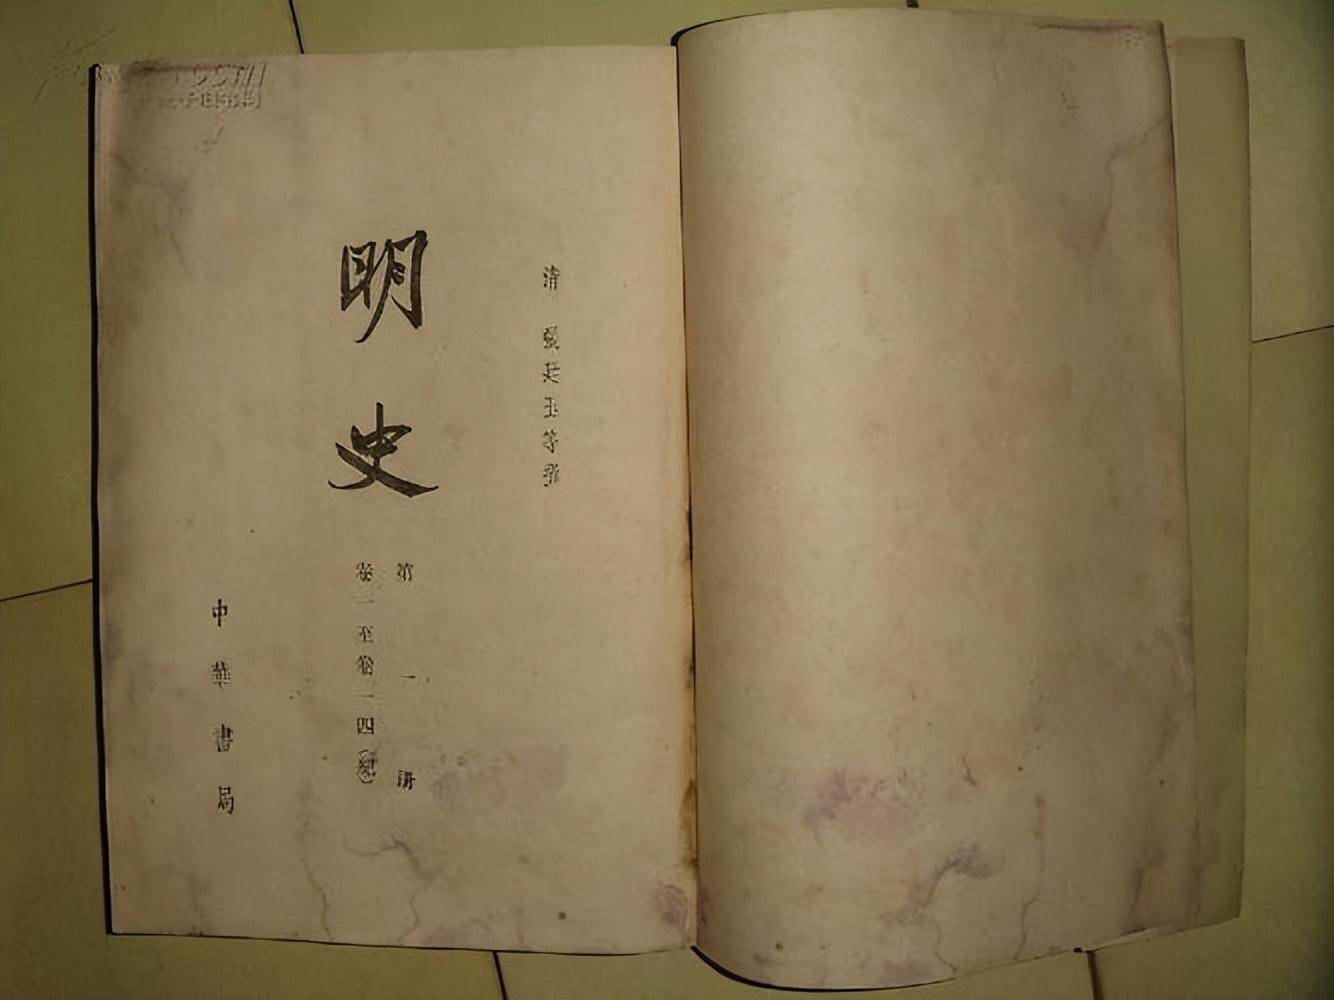 清 張廷玉等撰
明史
第一册
卷一至卷一四（紀）
中華書局